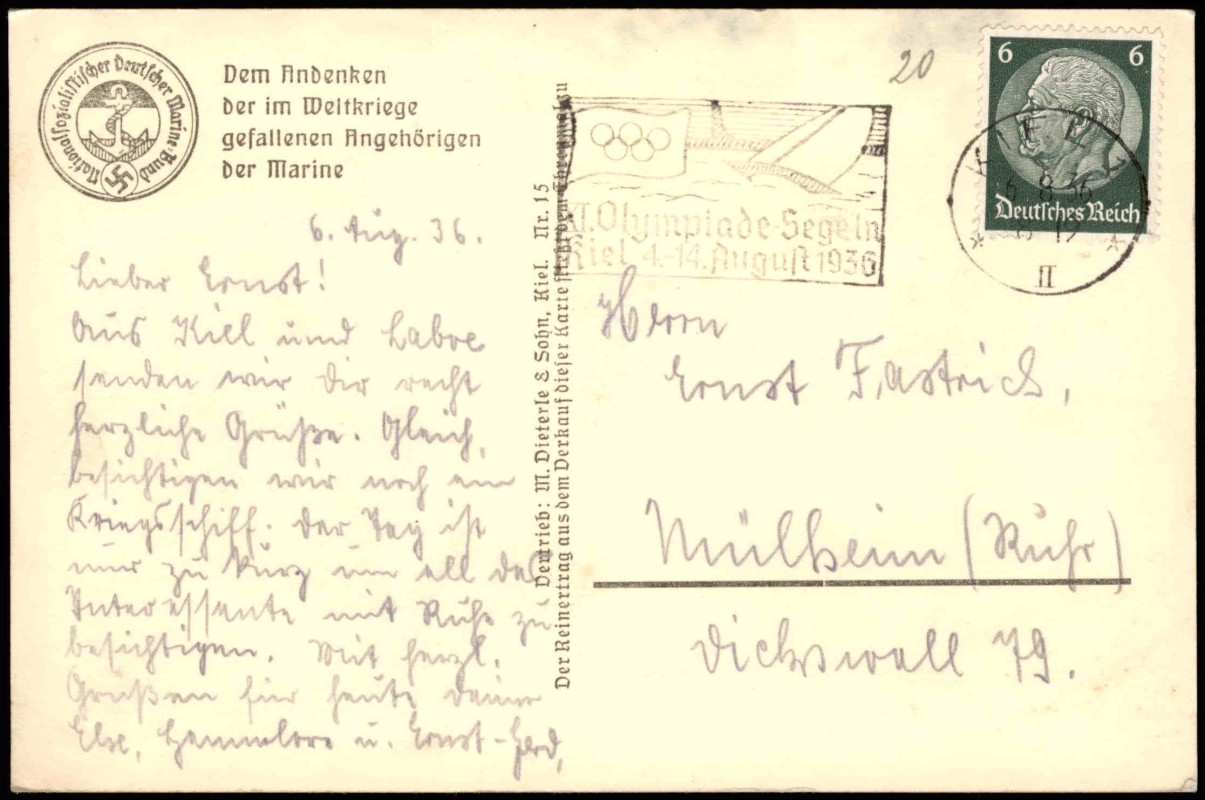 Nationalsozialistischer Deutscher Marine-Bund
Dem Andenken
der im Weltkriege
gefallenen Angehörigen
der Marine
6. Aug. 36.
Lieber Ernst!
Aus Kiel und Laboe
senden wir Dir recht
herzliche Grüße. Gleich
besichtigen wir noch ein
Kriegsschiff. Der Tag ist
nur zu kurz um all das
Interessante mit Ruhe zu
besichtigen. Mit herzl.
Grüßen für heute Deine
Else, Hannelore u. Ernst-
Vertrieb: M. Dieterle & Sohn, Kiel. Nr. 15
Der Reinertrag aus dem Verkauf dieser Karte fließt dem Ehrenmal zu
20
XI. Olympiade-Segeln
Kiel 4.-14. August 1936
6 6
Deutsches Reich
KIEL
6.8.36
II
Herrn
Ernst Fastrich,
Mülheim (Ruhr)
Dickswall 79.